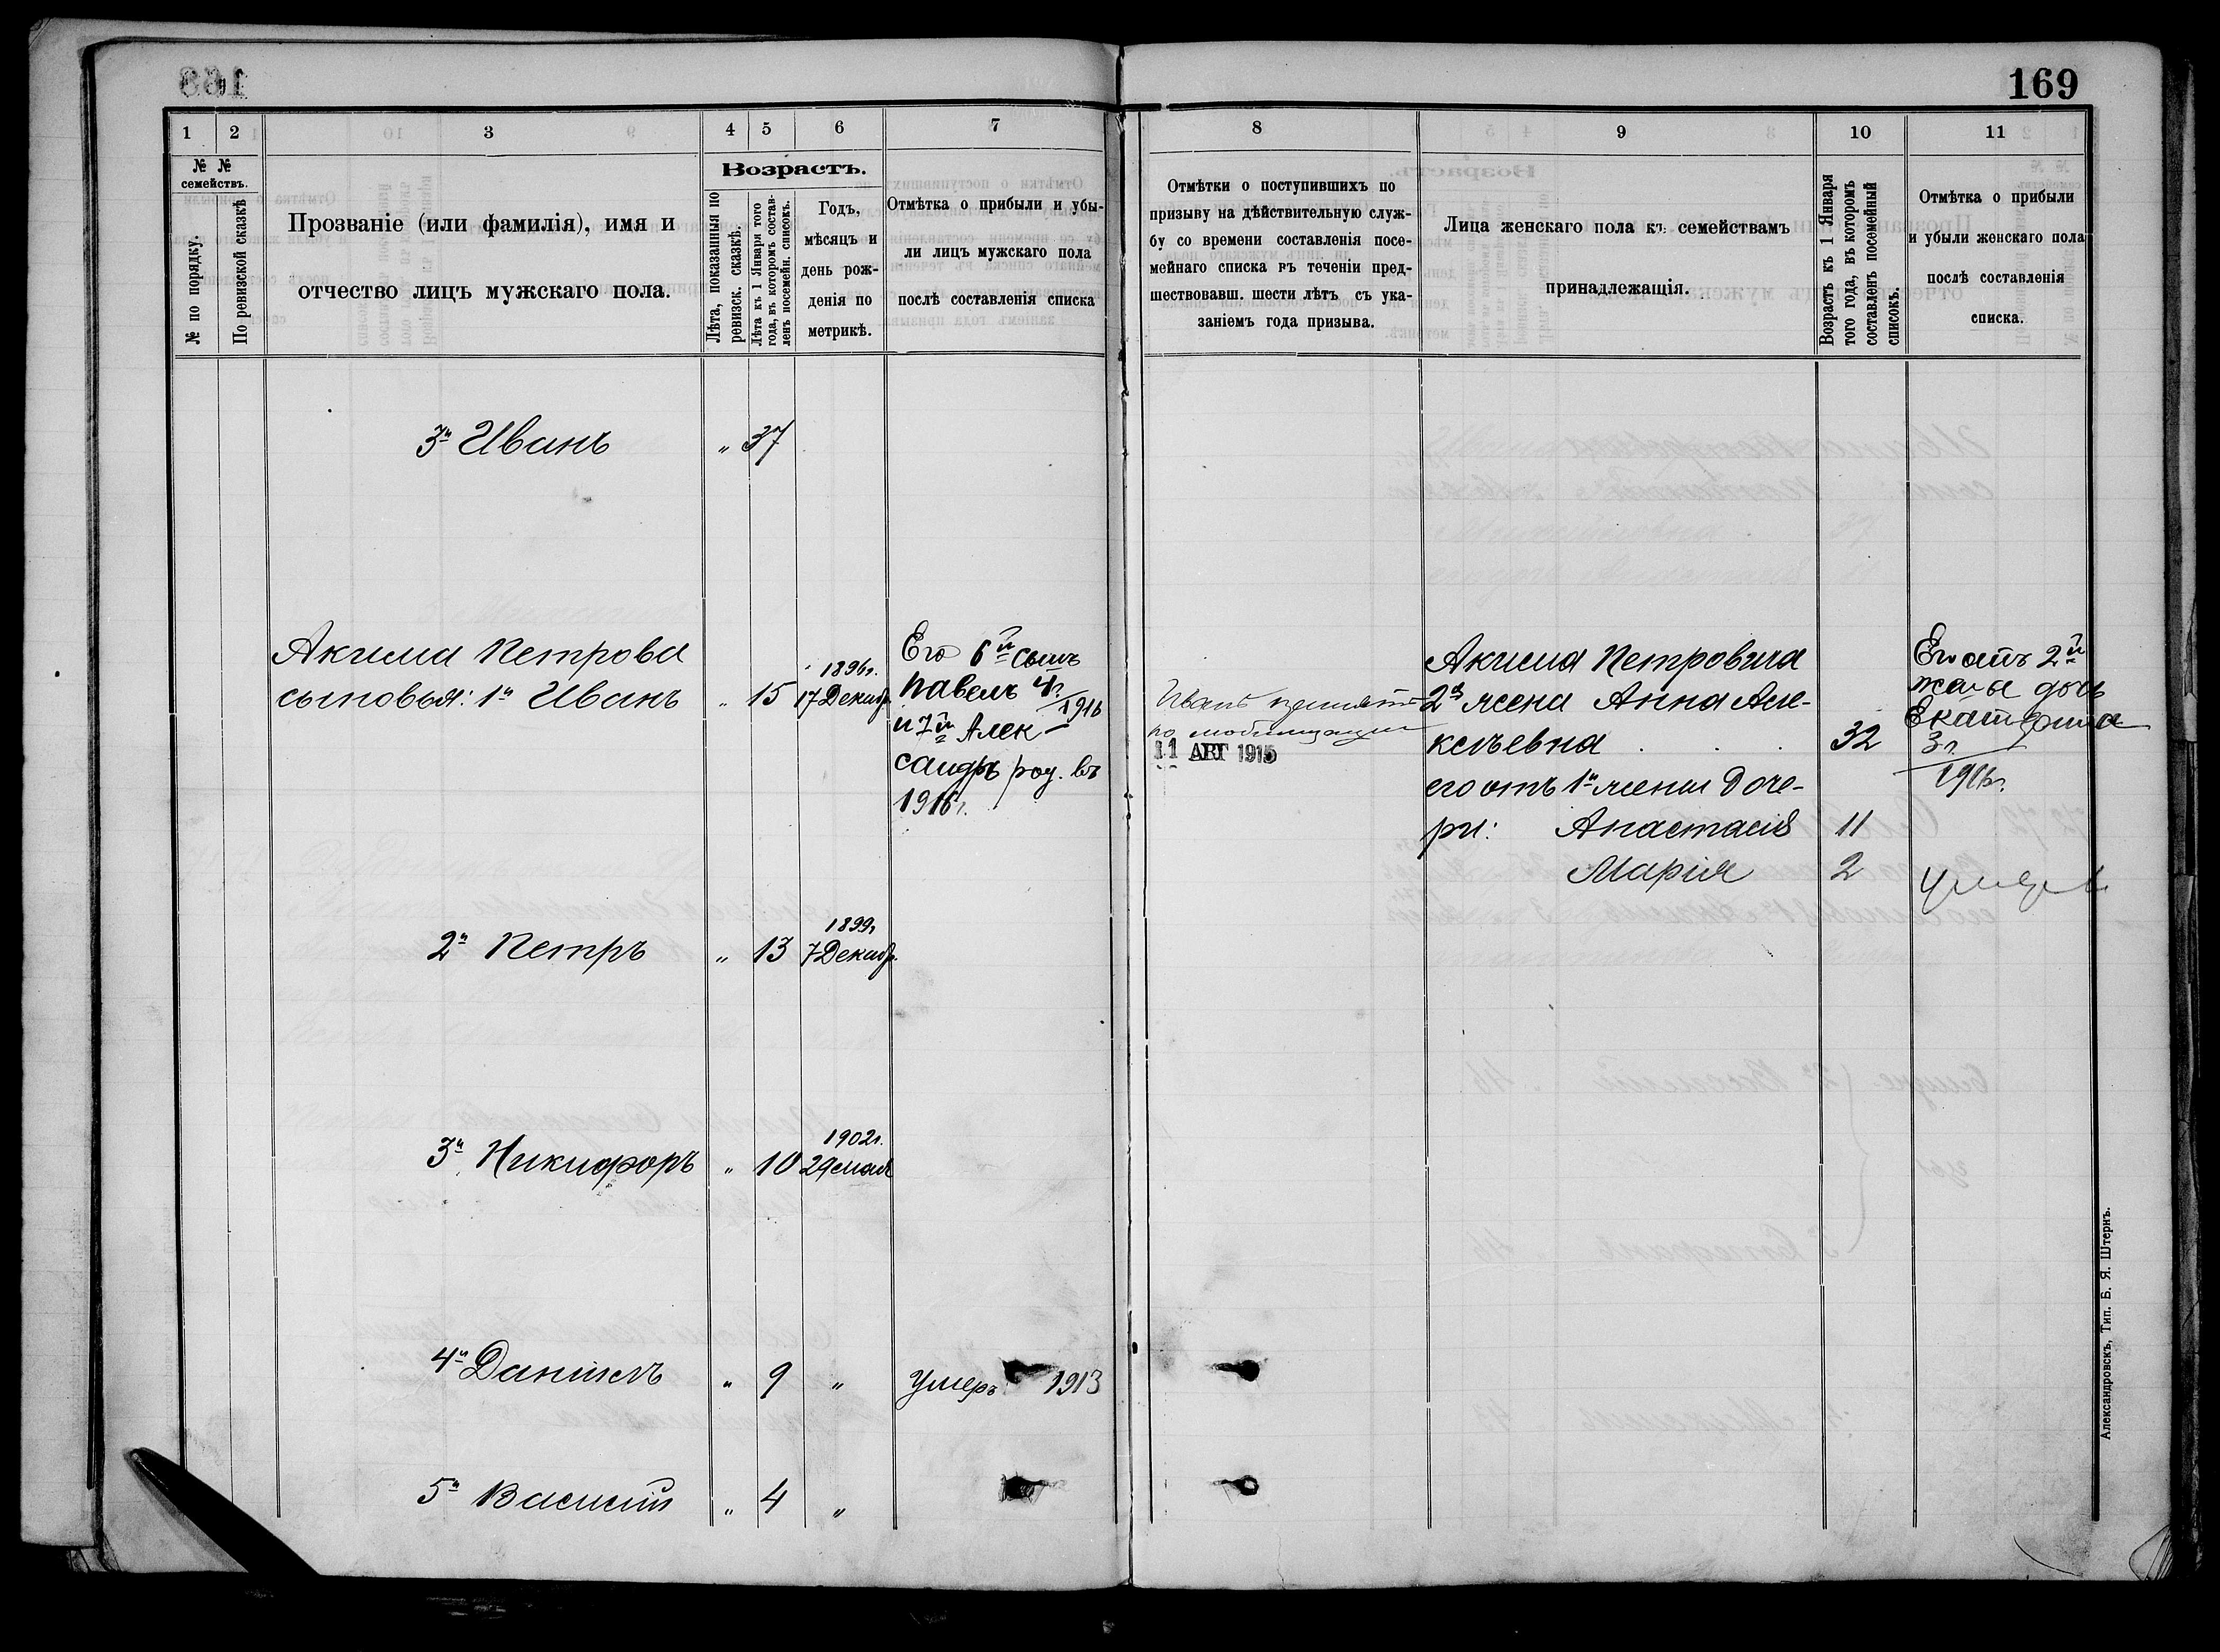 169
1 2 3 4 5 6 7
№ № семействъ.
№ по порядку.
По ревизской сказкѣ
Прозваніе (или фамилія), имя и
отчество лицъ мужскаго пола.
Возрастъ.
Лѣта, показанныя по
ревизск. сказкѣ.
Лѣта къ 1 Января того
года, въ которомъ состав-
ленъ посемейн. списокъ.
Годъ,
мѣсяцъ и
день рож-
денія по
метрикѣ.
Отмѣтка о прибыли и убы-
ли лицъ мужскаго пола
послѣ составленія списка
3й Иванъ " 37
Акима Петрова
сыновья: 1й Иванъ " 15
1896г.
17 Декабр.
Его 6й сынъ
Павелъ 4г.
1916
и 7й Алек-
сандръ род. въ
1916г.
2й Петръ " 13
1899г
7 Декабр.
3й Никифоръ " 10
1902г.
29 мая
4й Даніилъ " 9 " Умеръ 1913
5й Василій " 4 "
8 9 10 11
Отмѣтки о поступившихъ по
призыву на дѣйствительную служ-
бу со времени составленія посе-
мейнаго списка въ теченіи пред-
шествовавш. шести лѣтъ съ ука-
заніемъ года призыва.
Лица женскаго пола къ семействамъ
принадлежащія.
Возрастъ къ 1 Января
того года, въ которомъ
составленъ посемейный
списокъ.
Отмѣтка о прибыли
и убыли женскаго пола
послѣ составленія
списка.
Иванъ принятъ
по мобилизаціи
11 АВГ 1915
Акима Петровича
2я жена Анна Але-
ксѣевна . . 32
его отъ 1й жены доче-
ри: Анастасія 11
Марія 2
Его отъ 2й
жены дочь
Екатерина
3г.
1916г.
Александровскъ, Тип. Б. Я. Штернъ.